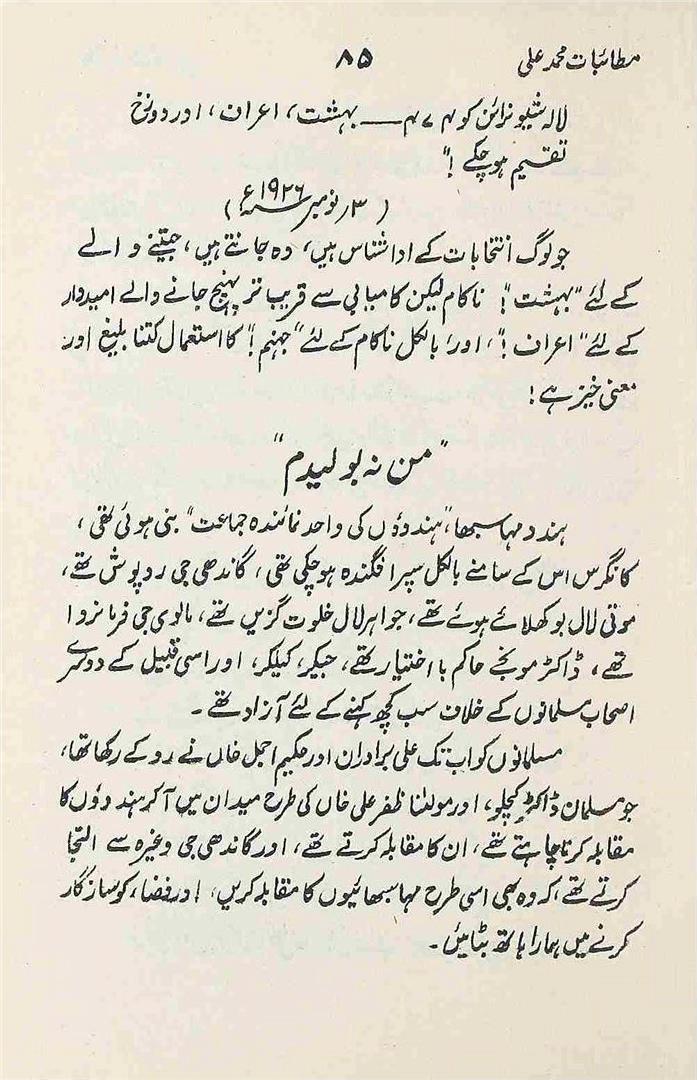 مطائبات محمد علی
۸۵
لالہ شیو نرائن کو ۴۷۴ ــــ بہشت، اعراف، اور دوزخ
تقسیم ہو چکے !"
(۳؍ نومبر ۱۹۲۶ء)
جو لوگ انتخابات کے ادا شناس ہیں، وہ جانتے ہیں، جیتنے والے
کے لئے "بہشت"! ناکام لیکن کامیابی سے قریب تر پہنچ جانے والے امیدوار
کے لئے "اعراف!"، اور بالکل ناکام کے لئے "جہنم!" کا استعمال کتنا بلیغ اور
معنی خیز ہے!
"من نہ بولیدم"
ہندو مہا سبھا، "ہندوؤں کی واحد نمائندہ جماعت" بنی ہوئی تھی،
کانگرس اس کے سامنے بالکل سپر افگندہ ہو چکی تھی، گاندھی جی روپوش تھے،
موتی لال بوکھلائے ہوئے تھے، جواہر لال خلوت گزیں تھے، مالوی جی فرمانروا
تھے، ڈاکٹر مونجے حاکم با اختیار تھے، جیکر، کیلکر، اور اسی قبیل کے دوسرے
اصحاب مسلمانوں کے خلاف سب کچھ کہنے کے لئے آزاد تھے۔
مسلمانوں کو اب تک علی برادران اور حکیم اجمل خاں نے روکے رکھا تھا،
جو مسلمان ڈاکٹر کچلو، اور مولٰنا ظفر علی خاں کی طرح میدان میں آ کر ہندوؤں کا
مقابلہ کرنا چاہتے تھے، ان کا مقابلہ کرتے تھے، اور گاندھی جی وغیرہ سے التجا
کرتے تھے، کہ وہ بھی اسی طرح مہا سبھائیوں کا مقابلہ کریں، اور فضا، کو سازگار
کرنے میں ہمارا ہاتھ بٹائیں۔